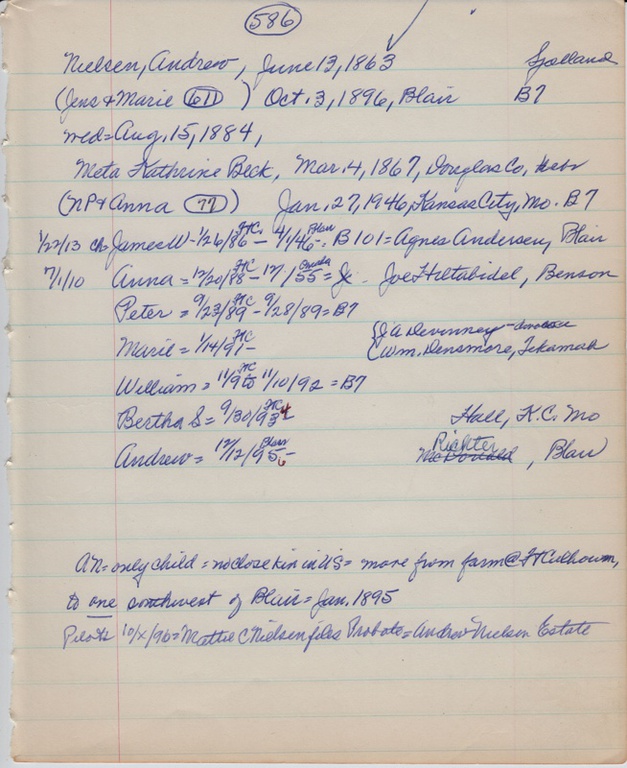 586
Nielsen, Andrew, June 13, 1863 Sjolland
(Jens & Marie 611) Oct. 3, 1896, Blair B7
wed = Aug. 15, 1884,
Meta Kathrine Beck, Mar. 4, 1867, Douglas Co, Nebr
(NP & Anna 77) Jan. 27, 1946, Kansas City, Mo. B7
1/22/13 ch James W - 1/26/86 FTC - 4/1/46 Blair. B 101 = Agnes Andersen, Blair
7/1/10 Anna = 12/20/88 FTC - 12/ /55 Omaha = Joe Hiltabidel, Benson
Peter = 9/23/89 FTC - 9/28/89 = B7
(J A Devinney - divorce
Marie = 1/14/91 FTC - (Wm. Densmore, Tekamah
William = 11/9 FTC 11/10/92 = B7
Bertha S = 9/30/93 FTC 4 - Hall, K.C. Mo
Richter
Andrew = 12/12/95 Blair 6 - McDonald, Blair
AN = only child = no close kin in US = move from farm @ Ft Calhoun,
to one southwest of Blair = Jan. 1895
Pilot 10/x/96 = Mattie C Nielsen files Probate = Andrew Nielsen Estate